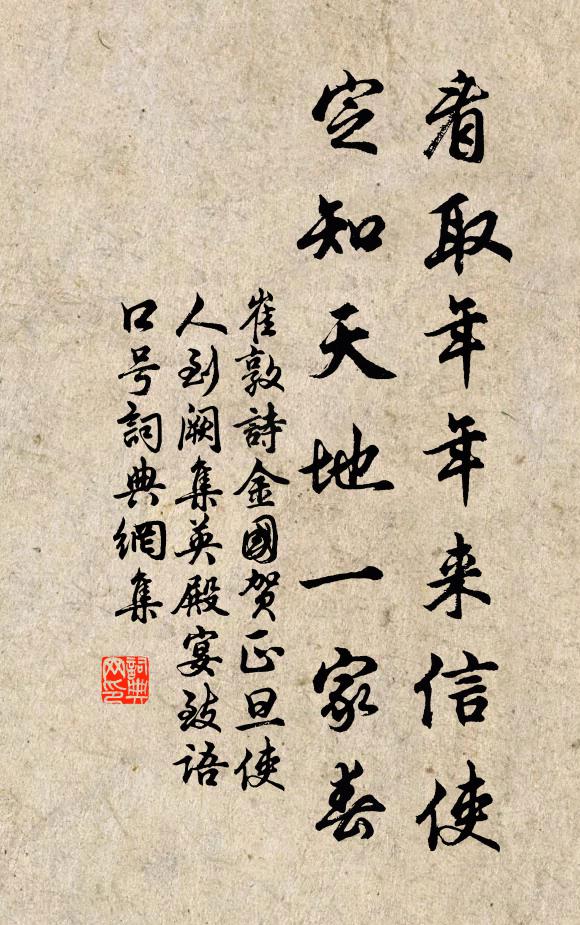 看取年年来信使
定知天地一家春
崔敦詩金國贺正旦使
人到阙集英殿宴致语
口号詞典網集
詞典网印